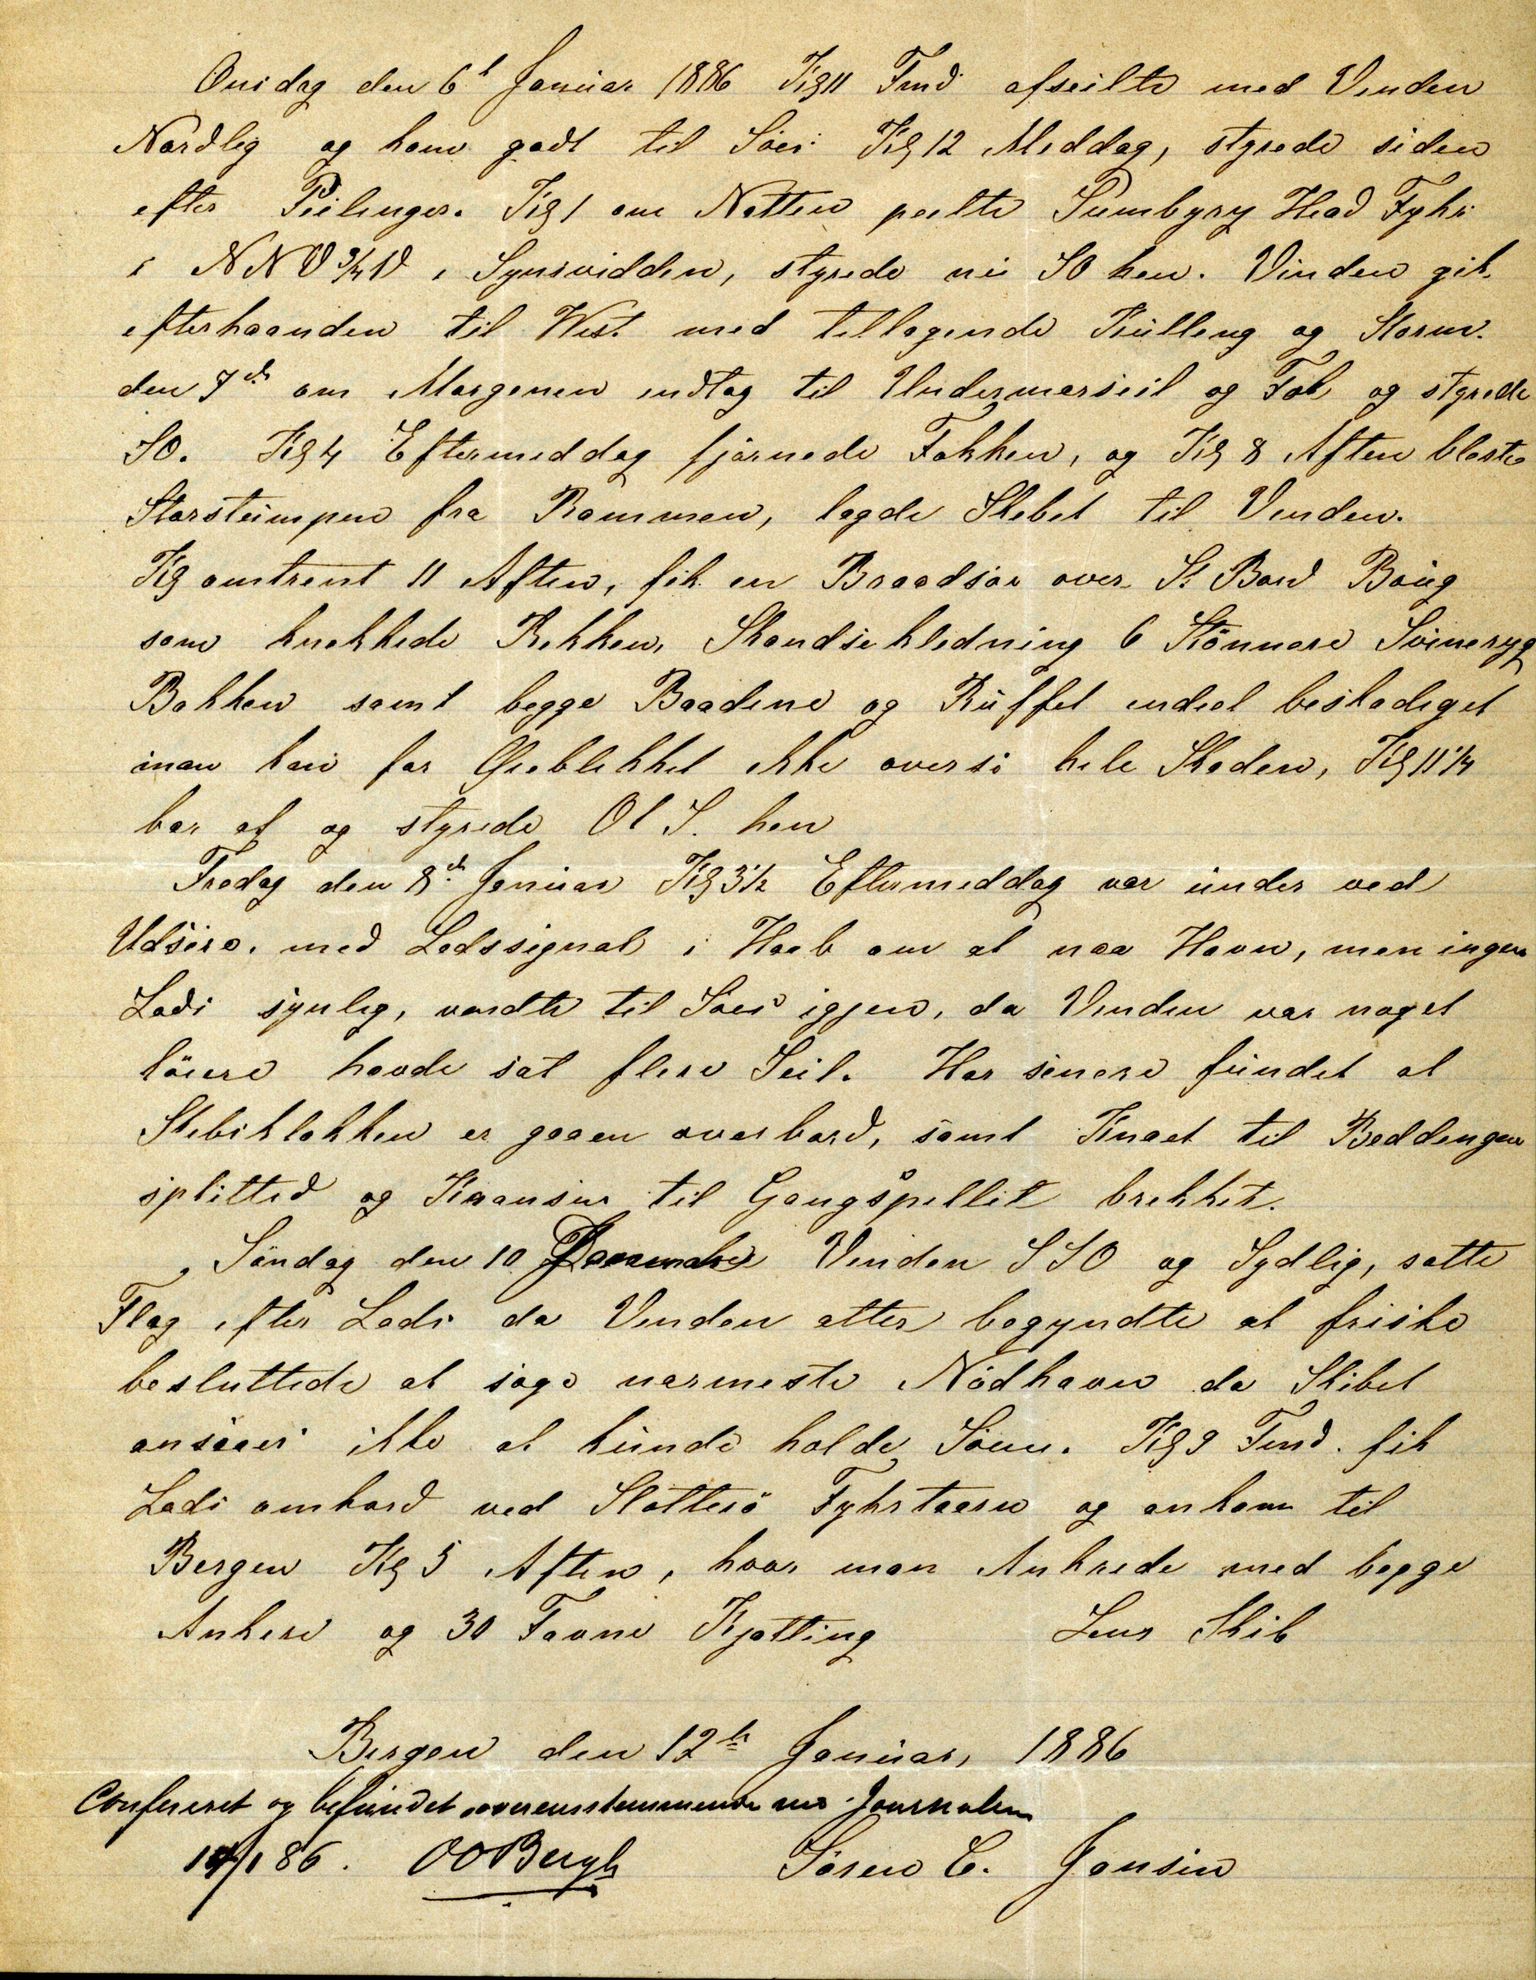 Onsdag den 6t Januar 1886 Kl 11 Fmd afseilte med Vinden
Nordlig og kom godt til Søes Kl 12 Middag, styrede siden
efter Peilinger. Kl 1 om Natten peilte Sumbyrg Head Fyhr
i NNV 3/4 V i Synsvidden, styrede nu SO hen. Vinden gik
efterhaanden til West med tiltagende Kulling og Storm.
den 7de om Morgenen indtog til Undermerseil og Fok og styrede
SO. Kl 4 Eftermiddag fjernede Fokken, og Kl 8 Aften bleste
Storstumpen fra Rammen, lagde Skibet til Vinden.
Kl omtrent 11 Aften, fik en Braadsøe over St Bord Boug
som knekkede Rekken, Skandseklædning 6 Stønnere Svineryg
Bakken samt begge Baadene og Ruffet endeel beskadiget
man kan for Øieblikket ikke overse hele Skaden, Kl 11 1/4
bar af og styrede OtS. hen
Fredag den 8de Januar Kl 3 1/2 Eftermiddag var under ved
Udsire. med Lodssignal i Haab om at naa Havn, men ingen
Lods synlig, vendte til Søes igjen, da Vinden var noget
løiere havde sat flere Seil. Har senere fundet at
Skibsklokken er gaaen overbord, samt Knæet til Beddingen
splitted og Kraansen til Gangspellit brekket.
Søndag den 10 Vinden SSO og Sydlig, satte
Flag efter Lods da Vinden atter begyndte at friske
besluttede at søge nærmeste Nødhavn da Skibet
ansaaes ikke at kunde holde Søen. Kl 9 Fmd. fik
Lods ombord ved Slotterø Fyhrtaarn og ankom til
Bergen Kl 5 Aften, hvor man Ankrede med begge
Ankere og 30 Favne Kjetting Lens Skib
Bergen den 12te Januar, 1886
Confereret og befundet overensstemmende med Journalen
14/1 86. OO Bergh Søren C. Jensen